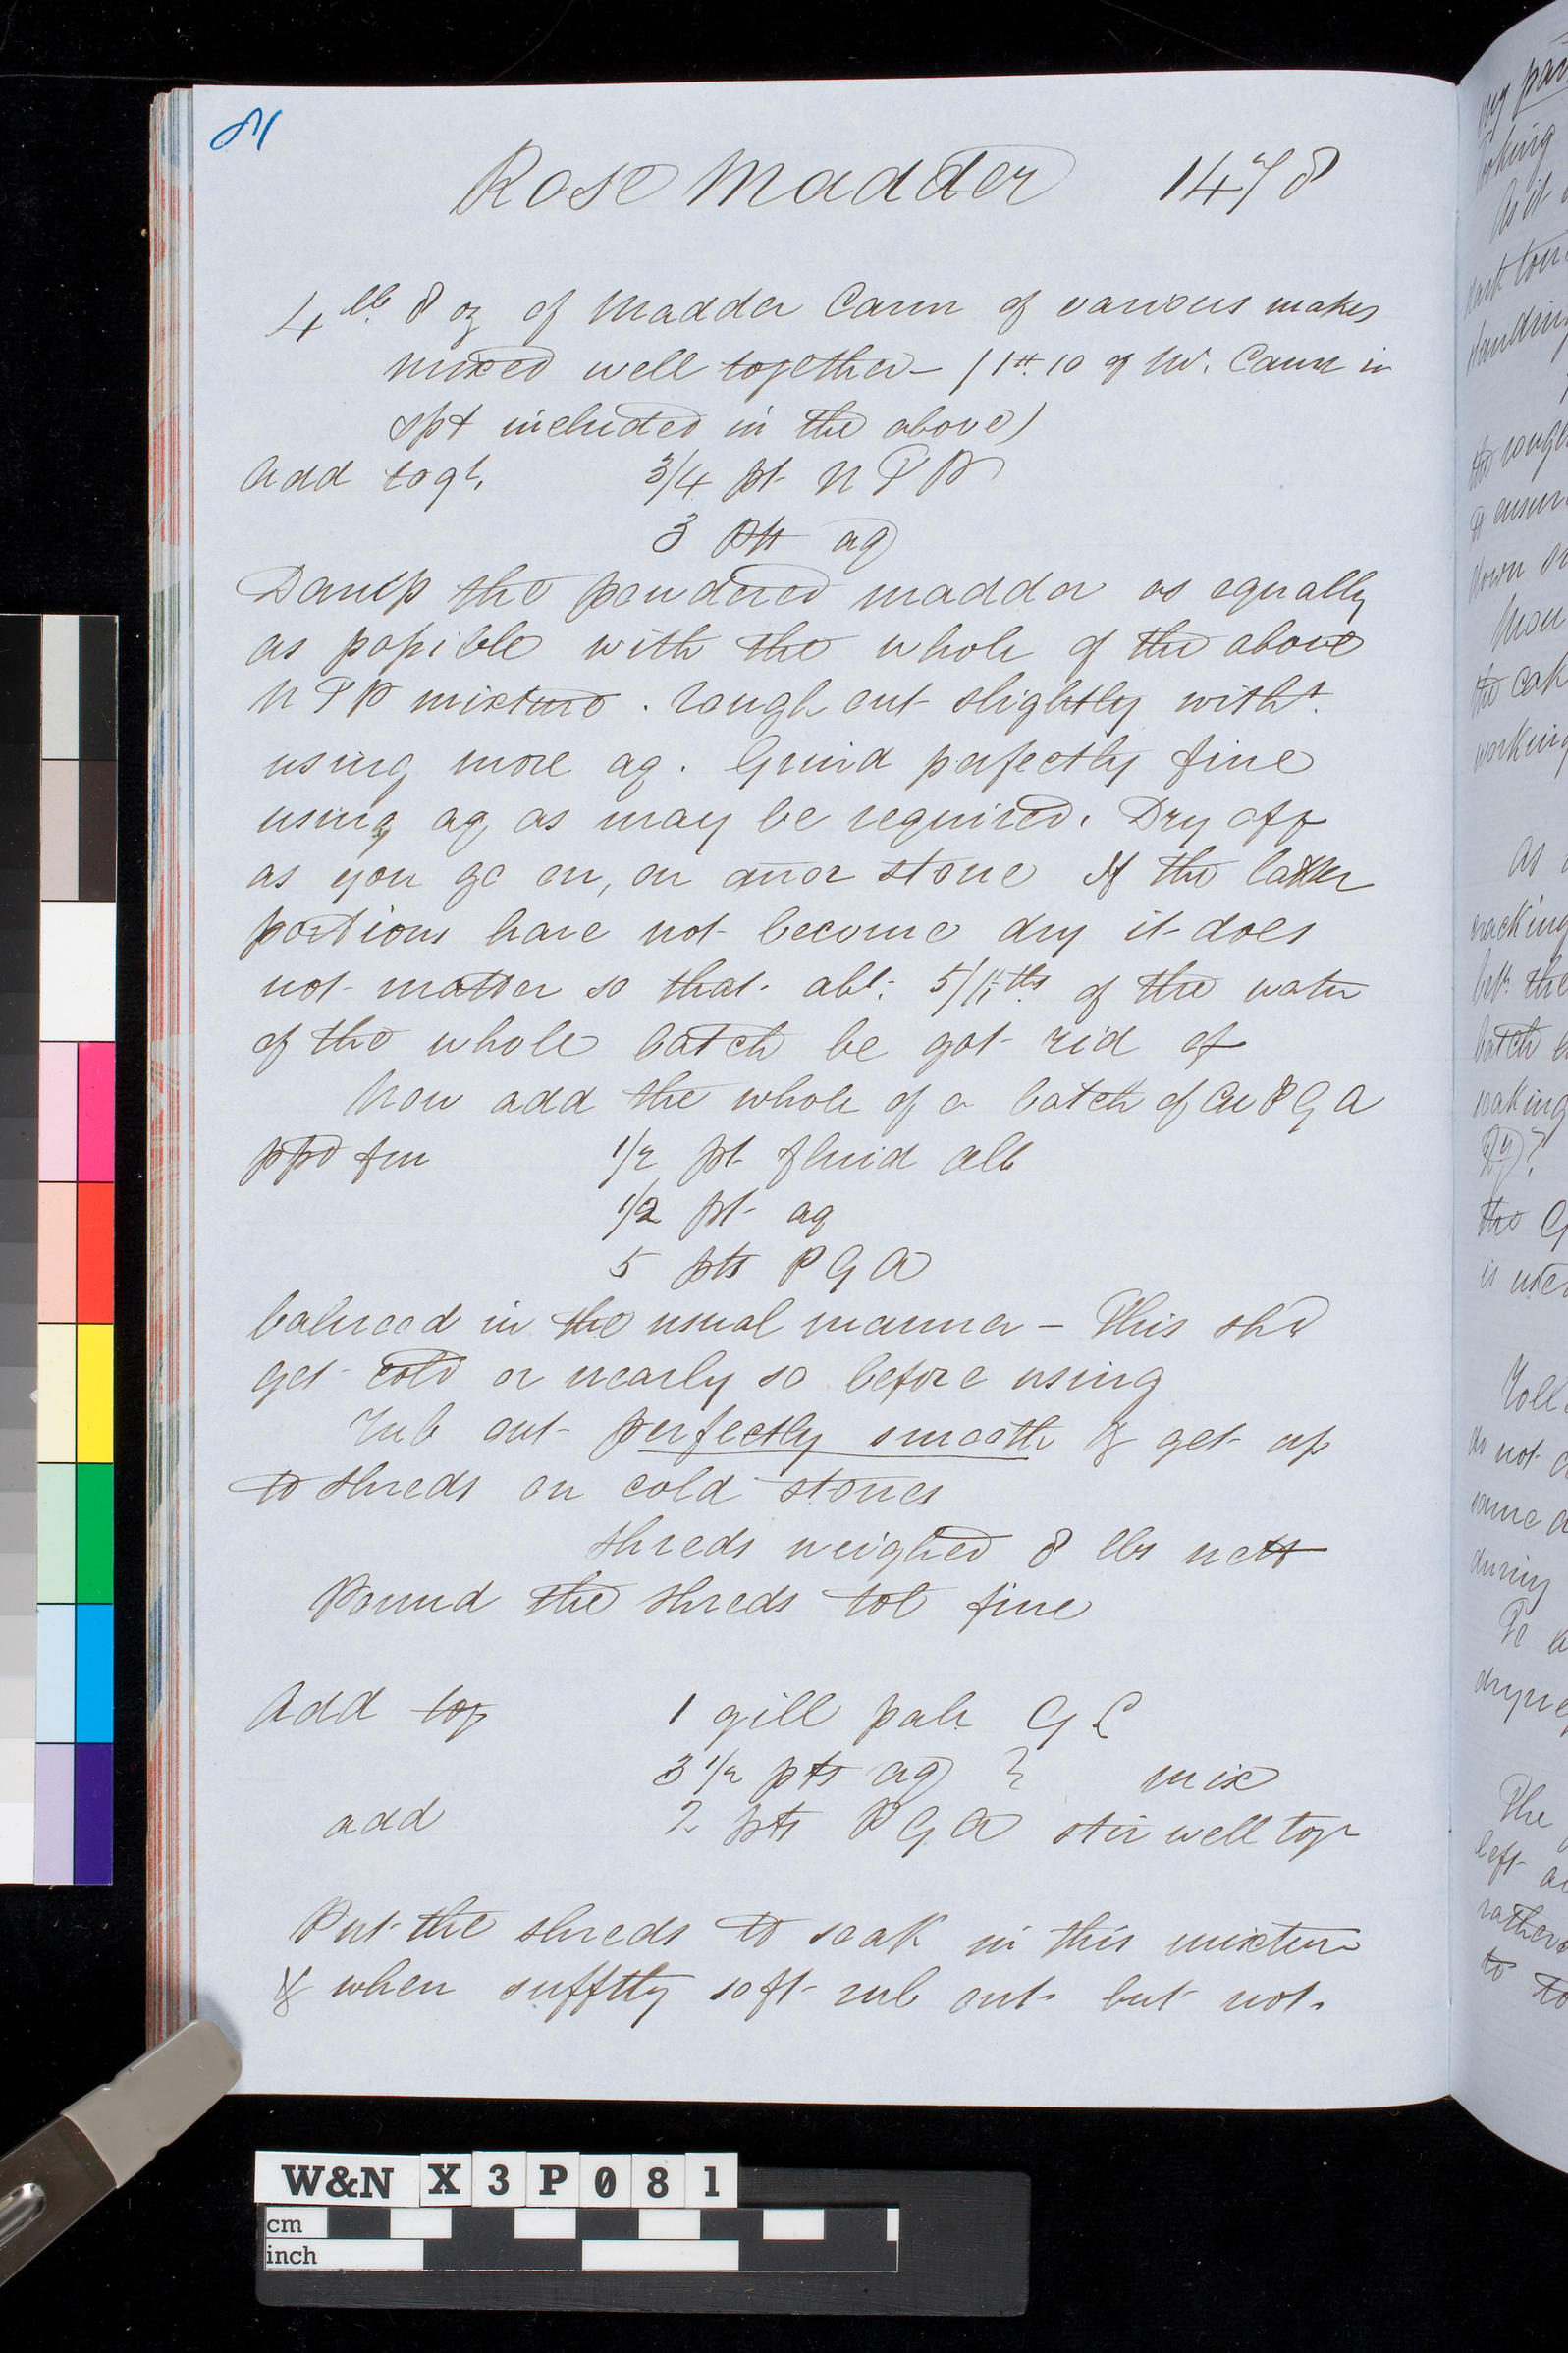 81
Rose Madder 1478
4 lb 8 oz of Madder Carm of various makes
mixed well together – (1 10 of W. Carm in
spt included in the above)
Add togr. 3/4 pt N P P
3 pts aq
Damp the powdered madder as equally
as possible with the whole of the above
N P P mixture. rough out slightly witht.
using more aq. Grind perfectly fine
using aq as may be required. Dry off
as you go on, on anor stone If the latter
portions have not become dry it does
not matter so that abt: of the water
of the whole batch be got rid of
Now add the whole of a batch of P G A
ppd fm 1/2 pt fluid alb
1/2 pt aq
5 pts P G A
balnced in the usual manner – This shd
get cold or nearly so before using
Rub out perfectly smooth & get up
to shreds on cold stones
shreds weighed 8 lbs nett
Pound the shreds tol fine
Add tog 1 gill pale G L
3 1/2 pts aq } mix
add 2 pts P G A stir well togr
Put the shreds to soak in this mixture
& when sufftly soft rub out but not
W&N X3P081
cm
inch